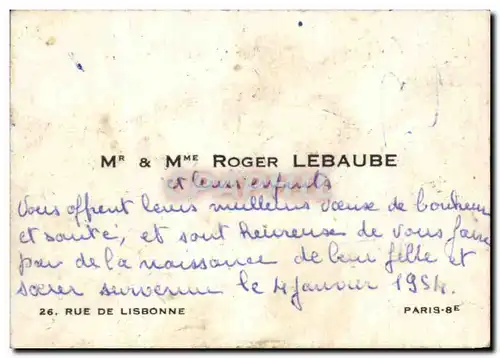 Mr & Mme Roger LEBAUBE
et leurs enfants
Vous offrent leurs meilleurs vœux de bonheur
et santé, et sont heureuse de vous faire
par de la naissance de leur fille et
sœur survenue le 4 janvier 1954.
26, RUE DE LISBONNE PARIS-8E